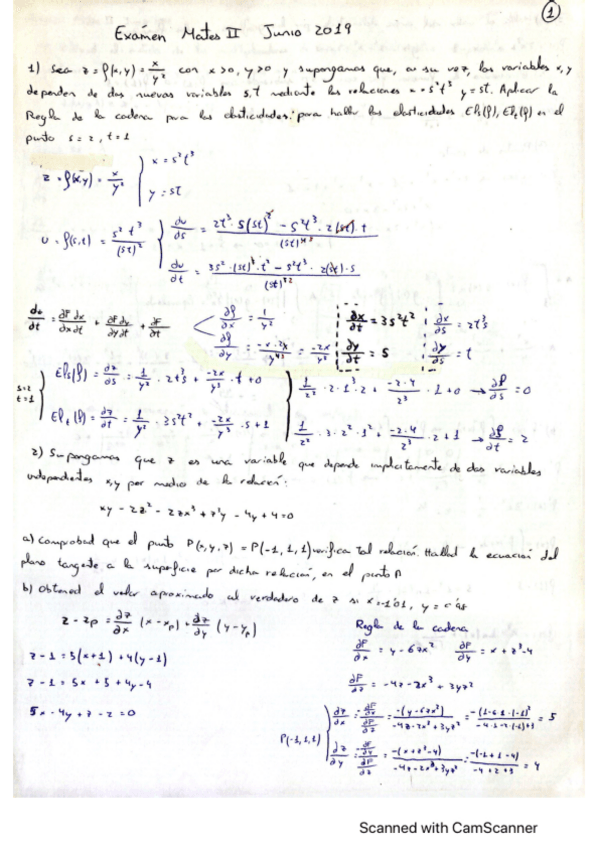 1
Examen Mates II Junio 2019
1) Sea z = f(x,y) = x/y² con x>0, y>0 y supongamos que, a su vez, las variables x, y
dependen de dos nuevas variables s,t mediante las relaciones x = s²t³ y = st. Aplicar la
Regla de la cadena para las elasticidades: para hallar las elasticidades Els(f), Elt(f) en el
punto s = 2, t = 1
z = f(x,y) = x/y² { x = s²t³
y = st
u = f(s,t) = s² t³/(st)² { du/ds = 2t³·s(st)² - s²t³·2(st)t/(st)
du/dt = 3s²·(st)²·t² - s²t³·2(st)·s/(st)
∂F/∂x dx/dt + ∂F/∂y dy/dt + ∂F/∂t
∂f/∂x = 1/y²
∂f/∂y = -x·2x/y⁴ = -2x/y³
∂x/∂t = 3s²t² ∂x/∂s = 2t³s
∂y/∂t = s ∂y/∂s = t
s=2
t=1
Els(f) = ∂z/∂s = 1/y² · 2t³s + -2x/y³ · t + 0
1/2² · 2·1³·2 + -2·4/2³ · 1 + 0 → ∂f/∂s = 0
Elt(f) = ∂z/∂t = 1/y² · 3s²t² + -2x/y³ · s + 1
1/2² · 3·2²·1² + -2·4/2³ · 2 + 1 → ∂f/∂t = 2
2) Supongamos que z es una variable que depende implicitamente de dos variables
independientes x,y por medio de la relación:
xy - 2z² - 2zx³ + z³y - 4y + 4 = 0
a) Comprobad que el punto P(x, y, z) = P(-1, 1, 1) verifica tal relación. Hallad la ecuación del
plano tangente a la superficie por dicha relación, en el punto P
b) Obtened el valor aproximado al verdadero de z si x=-1'01, y = 0'98
z - zp = ∂z/∂x (x - xp) + ∂z/∂y (y - yp)
Regla de la cadena
∂F/∂x = y - 6zx² ∂F/∂y = x + z³ - 4
z - 1 = 5(x+1) + 4(y-1)
z - 1 = 5x + 5 + 4y - 4
∂F/∂z = -4z - 2x³ + 3yz²
5x - 4y + z - 2 = 0
P(-1,1,1)
∂z/∂x = -∂F/∂x / ∂F/∂z = -(y-6zx²)/-4z-2x³+3yz² = -(1-6·1·(-1)²/-4·1-2·(-1)+3 = 5
∂z/∂y = -∂F/∂y / ∂F/∂z = -(x+z³-4)/-4z-2x³+3yz² = -(-1+1-4)/-4+2+3 = 4
Scanned with CamScanner